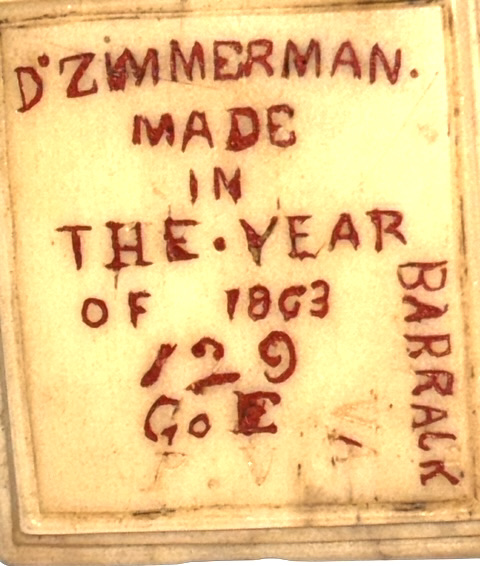 D'ZIMMERMAN.
MADE
IN
THE·YEAR
OF 1863
129
Go E
BARRACK